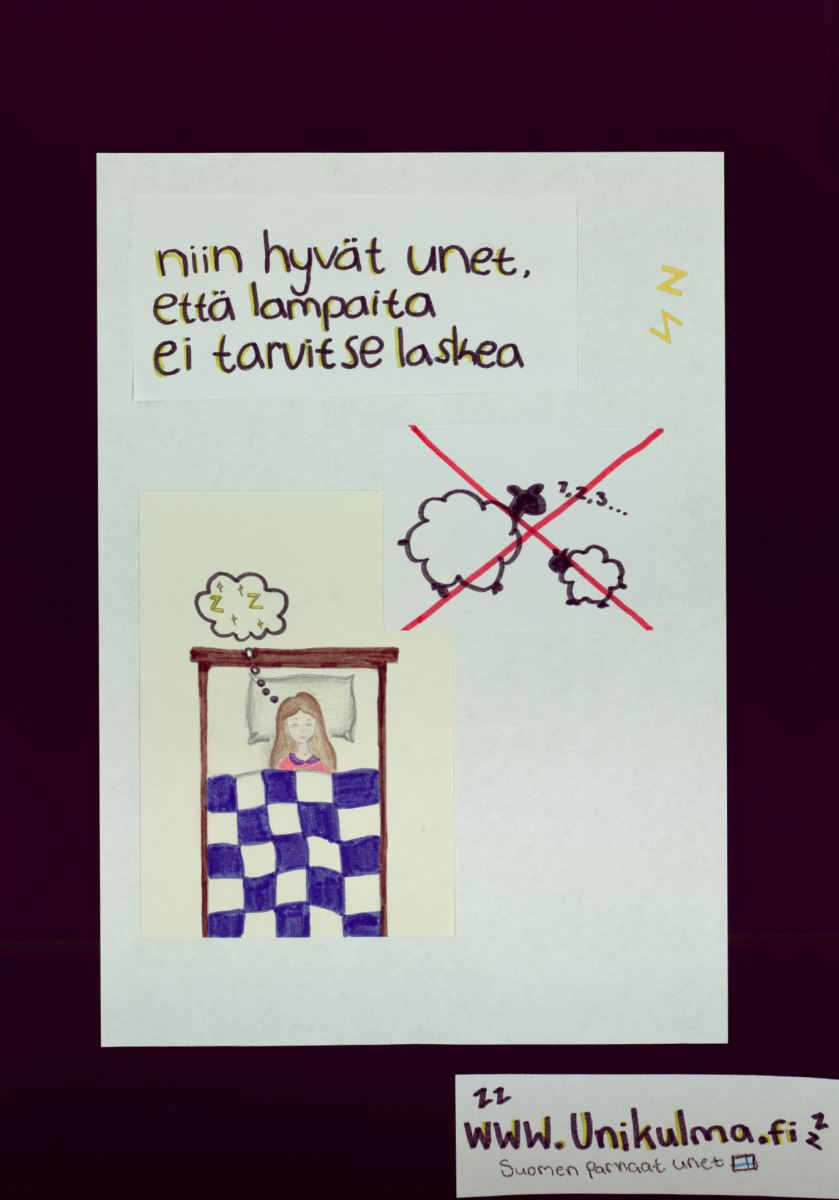 niin hyvät unet,
että lampaita
ei tarvitse laskea
Z Z
1, 2, 3...
Z Z
zz
www.Unikulma.fi
z z
Suomen parhaat unet